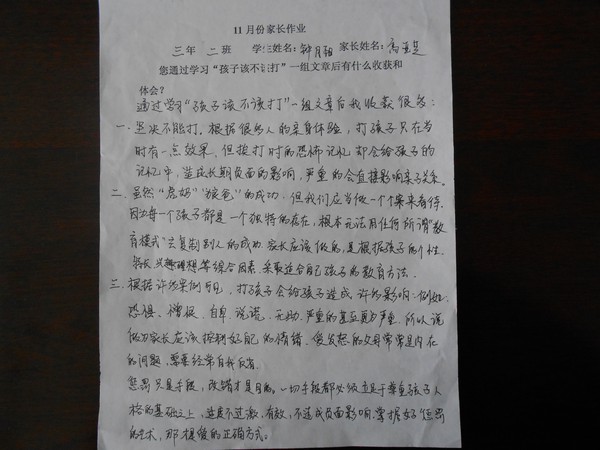 11月份家长作业
三年 二班 学生姓名: 钟月 家长姓名: 高
您通过学习“孩子该不该打”一组文章后有什么收获和
体会?
通过学习“孩子该不该打”一组文章后我收获很多:
一、坚决不能打. 根据很多人的亲身体验, 打孩子只在当
时有一点效果, 但挨打时的恐怖记忆却会给孩子的
记忆中, 造成长期负面的影响, 严重的会直接影响亲子关系.
二. 虽然“虎妈”“狼爸”的成功, 但我们应当做一个个案来看待.
因为每一个孩子都是一个独特的存在, 根本无法用任何所谓“教
育模式”去复制别人的成功. 家长应该做的, 是根据孩子的个性.
特长. 兴趣理想等综合因素, 采取适合自己孩子的教育方法.
三. 根据许多案例可见, 打孩子会给孩子造成许多影响: 例如.
恐惧、憎恨、自卑、说谎、无助. 严重的甚至更为严重. 所以说
做为家长应该控制好自己的情绪. 爱发怒的父母常常是内在
的问题, 需要经常自我反省.
惩罚只是手段, 改错才是目的. 一切手段都必须建立于尊重孩子人
格的基础之上, 适度不过激, 有效, 不造成负面影响, 掌握好惩罚
的艺术, 那 爱的正确方式.